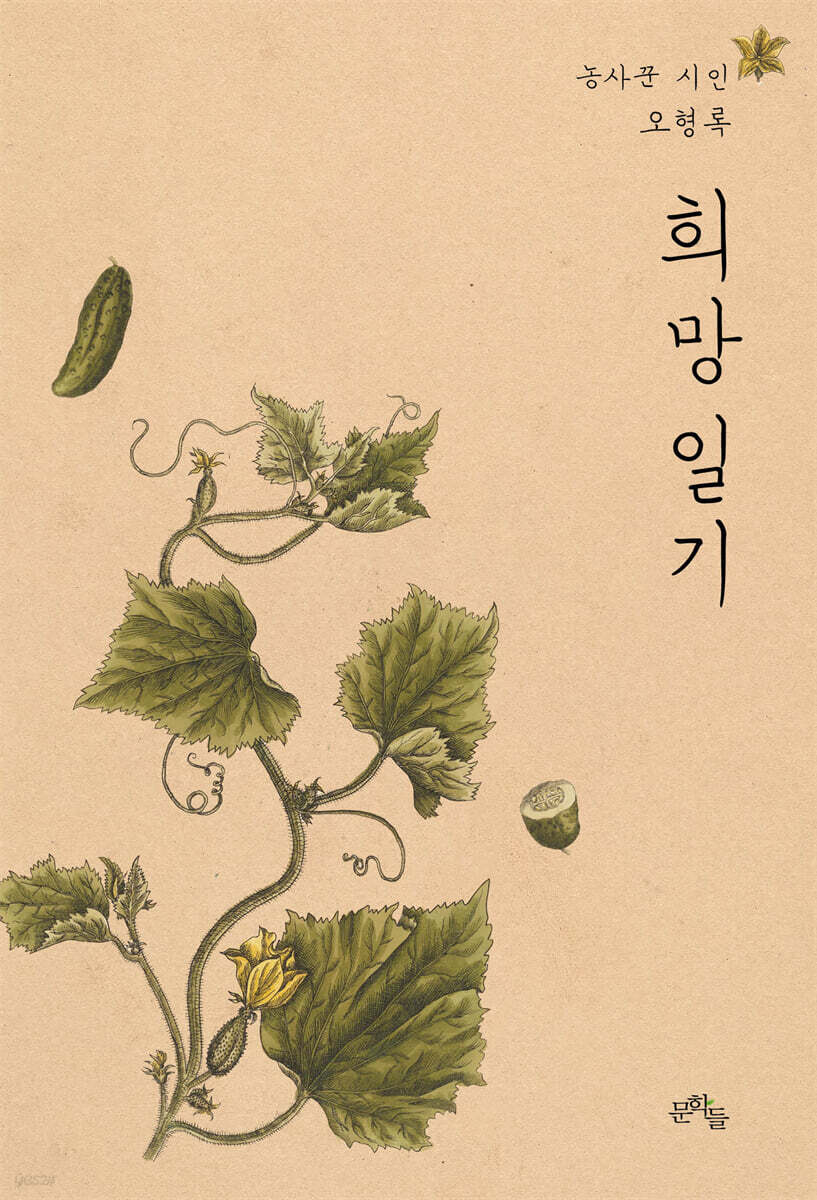 농사꾼 시인
오형록
희망일기
문학들
yes24